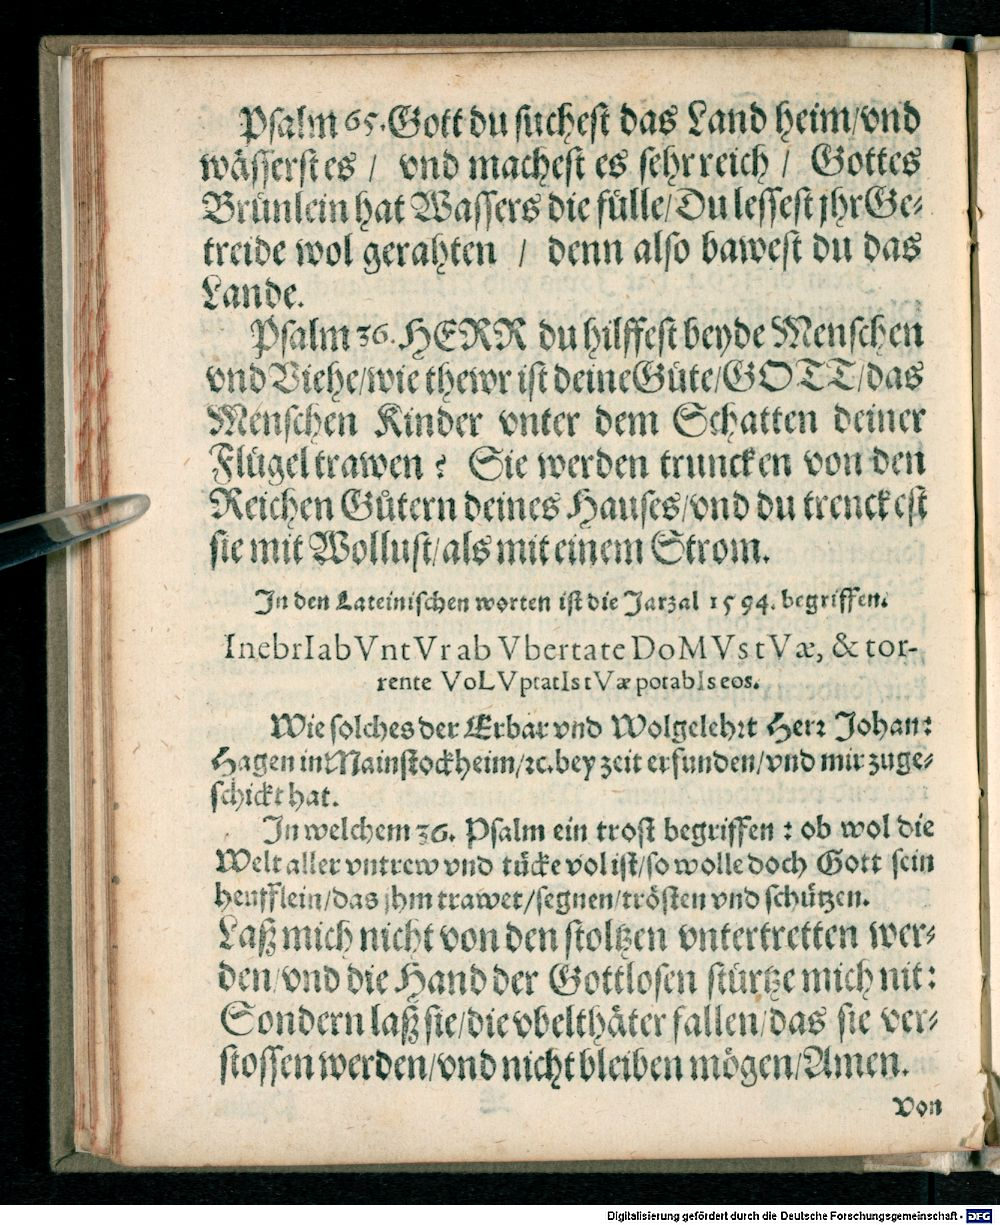 Psalm 65. Gott du suchest das Land heim/vnd
wässerst es / vnd machest es sehr reich / Gottes
Brünlein hat Wassers die fülle/Du lessest jhr Ge⸗
treide wol gerahten / denn also bawest du das
Lande.
Psalm 36. HERR du hilffest beyde Menschen
vnd Viehe/wie thewr ist deine Güte/GOTT/das
Menschen Kinder vnter dem Schatten deiner
Flügel trawen ? Sie werden truncken von den
Reichen Gütern deines Hauses/vnd du trenckest
sie mit Wollust/als mit einem Strom.
In den Lateinischen worten ist die Jarzal 1594. begriffen.
InebrIabVntVr ab Vbertate DoMVs tVæ, & tor-
rente VoLVptatIs tVæ potabIs eos.
Wie solches der Erbar vnd Wolgelehrt Herr Johan:
Hagen in Mainstockheim/ꝛc. bey zeit erfunden/vnd mir zuge⸗
schickt hat.
In welchem 36. Psalm ein trost begriffen : ob wol die
Welt aller vntrew vnd tücke vol ist/so wolle doch Gott sein
heufflein/das jhm trawet/segnen/trösten vnd schützen.
Laß mich nicht von den stoltzen vntertretten wer⸗
den/vnd die Hand der Gottlosen stürtze mich nit:
Sondern laß sie/die vbelthäter fallen/das sie ver⸗
stossen werden/vnd nicht bleiben mögen/Amen.
Von
Digitalisierung gefördert durch die Deutsche Forschungsgemeinschaft - DFG